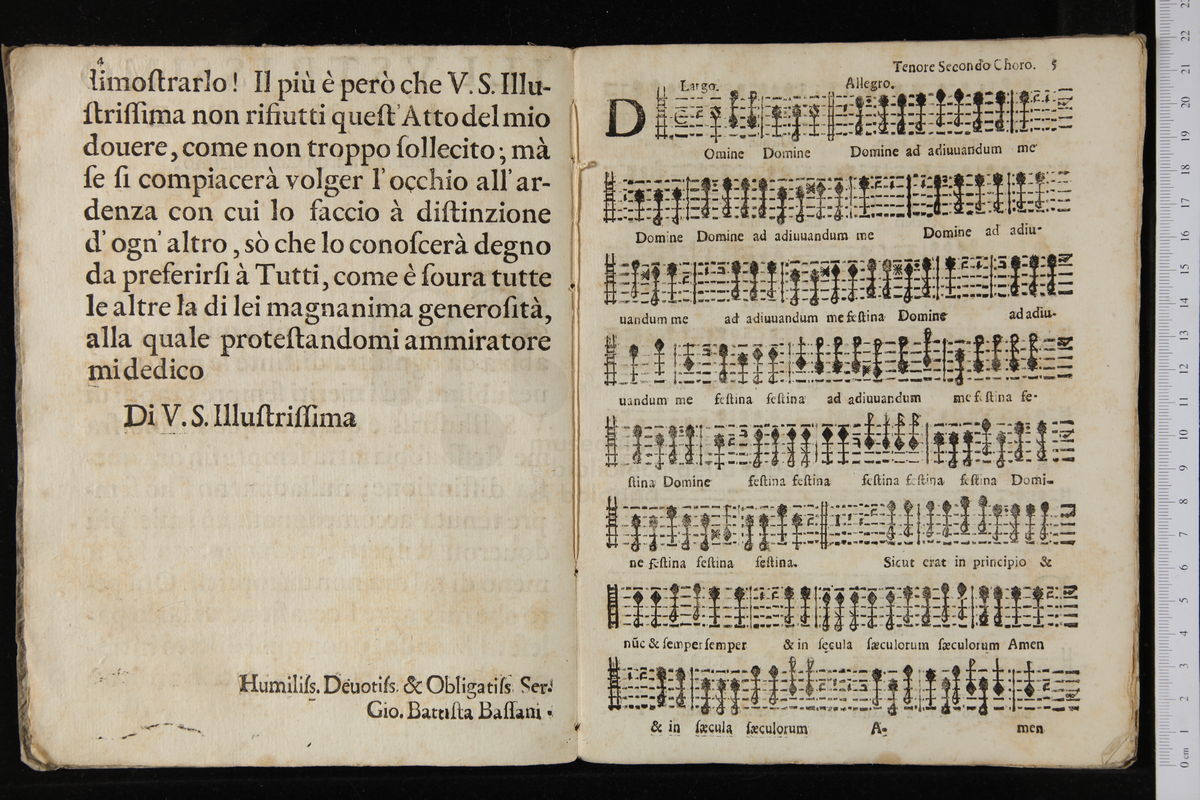 4
limoſtrarlo! Il più è però che V. S. Illu-
ſtriſſima non rifiutti queſt' Atto del mio
douere, come non troppo ſollecito; mà
ſe ſi compiacerà volger l'occhio all'ar-
denza con cui lo faccio à diſtinzione
d'ogn' altro, sò che lo conoſcerà degno
da preferirſi à Tutti, come è ſoura tutte
le altre la di lei magnanima generoſità,
alla quale proteſtandomi ammiratore
mi dedico
Di V. S. Illuſtriſſima
Humiliſs. Deuotiſs. & Obligatiſs. Ser.
Gio. Battiſta Baſſani.
Tenore Secondo Choro. 5
Largo. Allegro.
D
Omine Domine Domine ad adiuuandum me
Domine Domine ad adiuuandum me Domine ad adiu-
uandum me ad adiuuandum me feſtina Domine ad adiu-
uandum me feſtina feſtina ad adiuuandum me feſtina fe-
ſtina Domine feſtina feſtina feſtina feſtina feſtina Domi-
ne feſtina feſtina feſtina. Sicut erat in principio &
nũc & ſemper ſemper & in ſęcula ſæculorum ſæculorum Amen
& in ſæcula ſæculorum A- men
0 cm 1 2 3 4 5 6 7 8 9 10 11 12 13 14 15 16 17 18 19 20 21 22 23